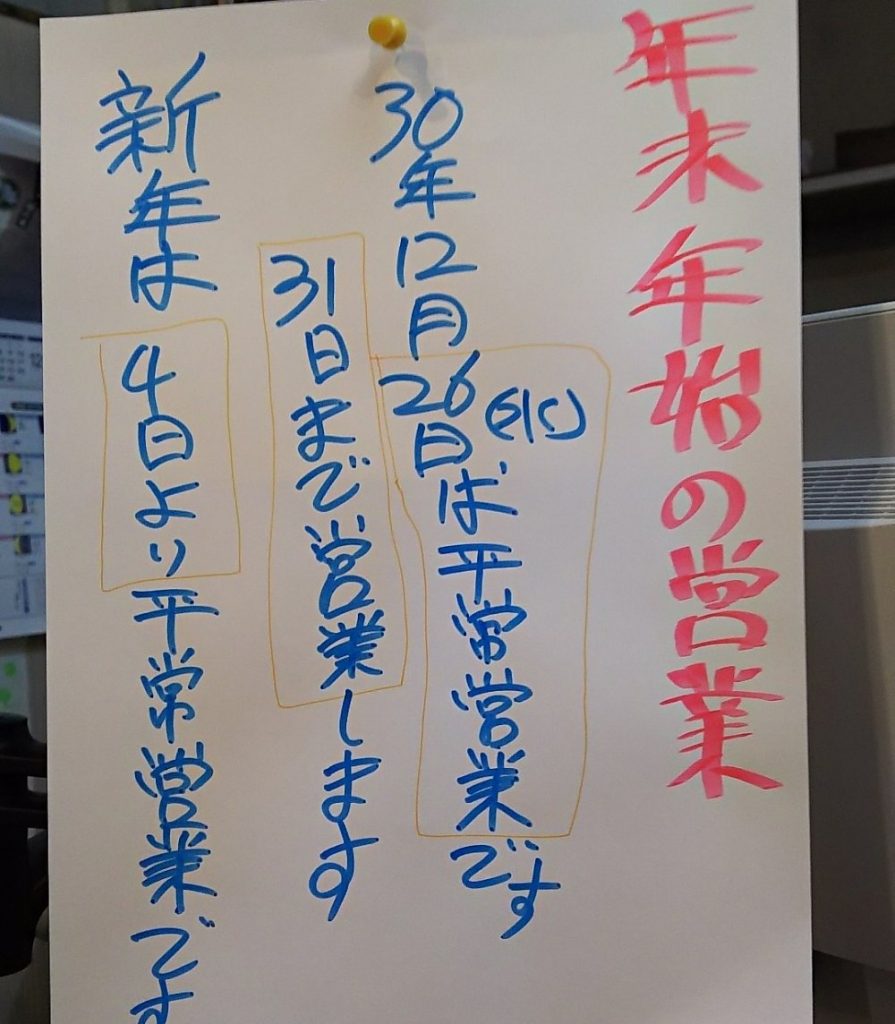 年末年始の営業
30年12月26日(水)は平常営業です
31日まで営業します
新年は4日より平常営業です
12